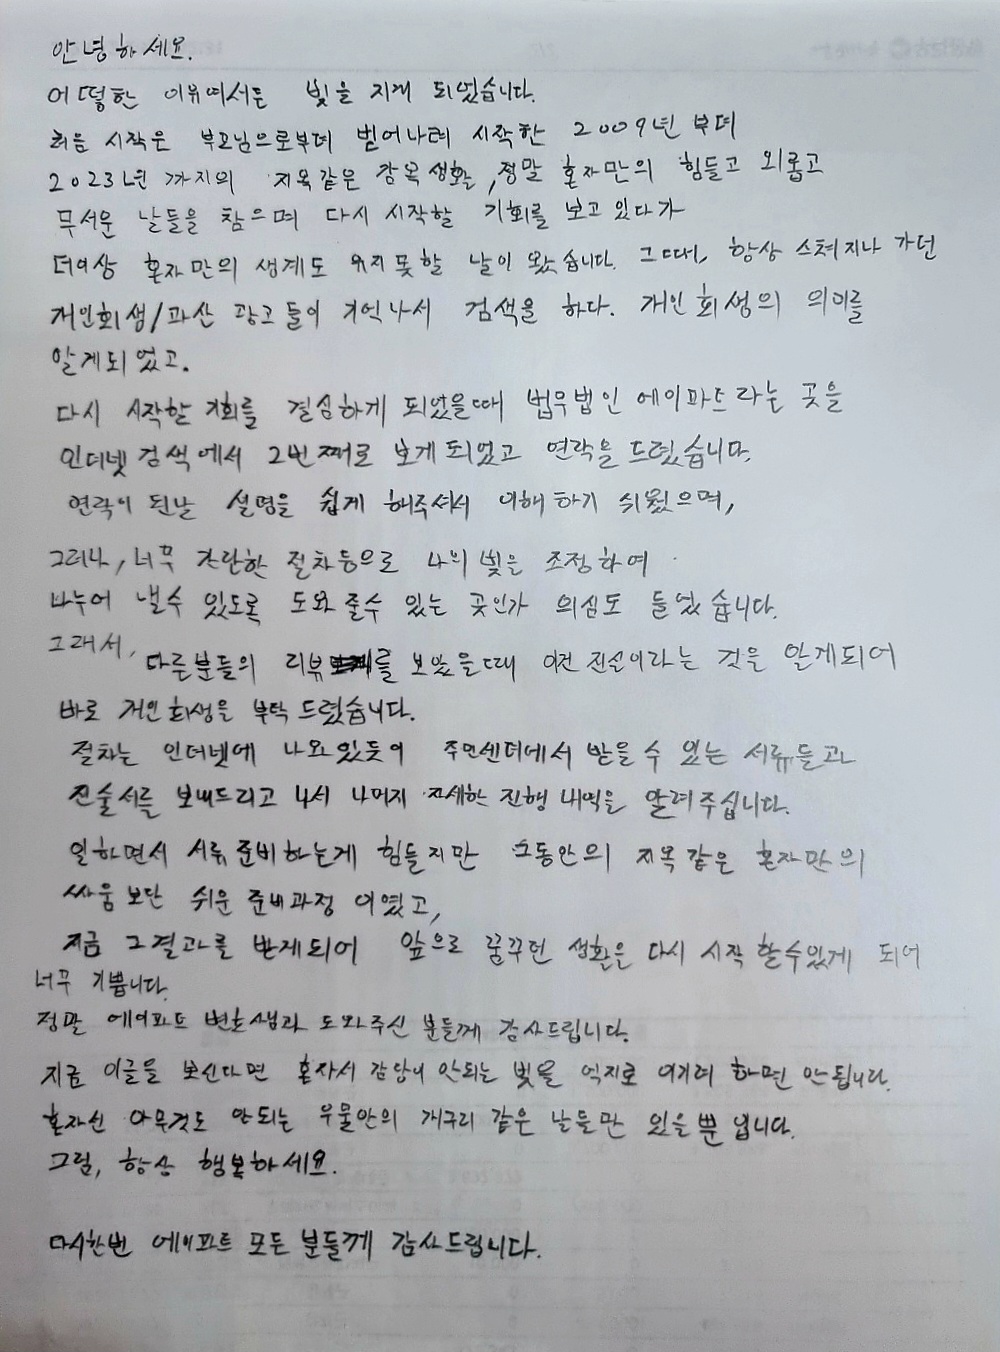 안녕하세요.
어떻한 이유에서든 빚을 지게 되었습니다.
처음 시작은 부모님으로부터 벗어나려 시작한 2009년 부터
2023년 까지의 지옥같은 감옥생활, 정말 혼자만의 힘들고 외롭고
무서운 날들을 참으며 다시 시작할 기회를 보고있다가
더이상 혼자만의 생계도 유지못할 날이 왔습니다. 그때, 항상 스쳐지나 가던
개인회생/파산 광고들이 기억나서 검색을 하다. 개인회생의 의미를
알게되었고.
다시 시작할 기회를 결심하게 되었을때 법무법인 에이파트라는 곳을
인터넷 검색에서 2번째로 보게되었고 연락을 드렸습니다.
연락이 된날 설명을 쉽게 해주셔서 이해하기 쉬웠으며,
그러나, 너무 간단한 절차등으로 나의 빚을 조정하여
나누어 낼수 있도록 도와줄수 있는 곳인가 의심도 들었습니다.
그래서, 다른분들의 리뷰를 보았을때 이건 진실이라는 것을 알게되어
바로 개인회생을 부탁드렸습니다.
절차는 인터넷에 나와있듯이 주민센터에서 받을 수 있는 서류들과
진술서를 보내드리고 나서 나머지 자세한 진행 내역을 알려주십니다.
일하면서 서류준비하는게 힘들지만 그동안의 지옥같은 혼자만의
싸움보단 쉬운 준비과정 이였고,
지금 그결과를 받게되어 앞으로 꿈꾸던 생활은 다시 시작할수있게 되어
너무 기쁩니다.
정말 에이파트 변호사님과 도와주신 분들께 감사드립니다.
지금 이글을 보신다면 혼자서 감당이 안되는 빚을 억지로 이기려 하면 안됩니다.
혼자선 아무것도 안되는 우물안의 개구리 같은 날들만 있을뿐 입니다.
그럼, 항상 행복하세요.
다시한번 에이파트 모든 분들께 감사드립니다.